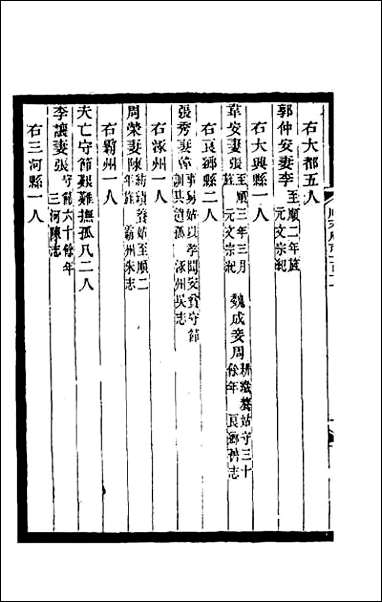 右大都五人
郭仲安妻李至順二年旌元文宗紀
右大興縣一人
韋安妻張至順三年三月旌元文宗紀
魏成妾周耕織養姑守三十餘年良鄉舊志
右良鄉縣二人
張秀妻韓事易姑以孝聞安貧守節訓其遺孤涿州吳志
右涿州一人
周榮妻陳紡績養姑至順二年旌霸州朱志
右霸州一人
夫亡守節艱難撫孤凡二人
李讓妻張守節六十餘年三河陳志
右三河縣一人